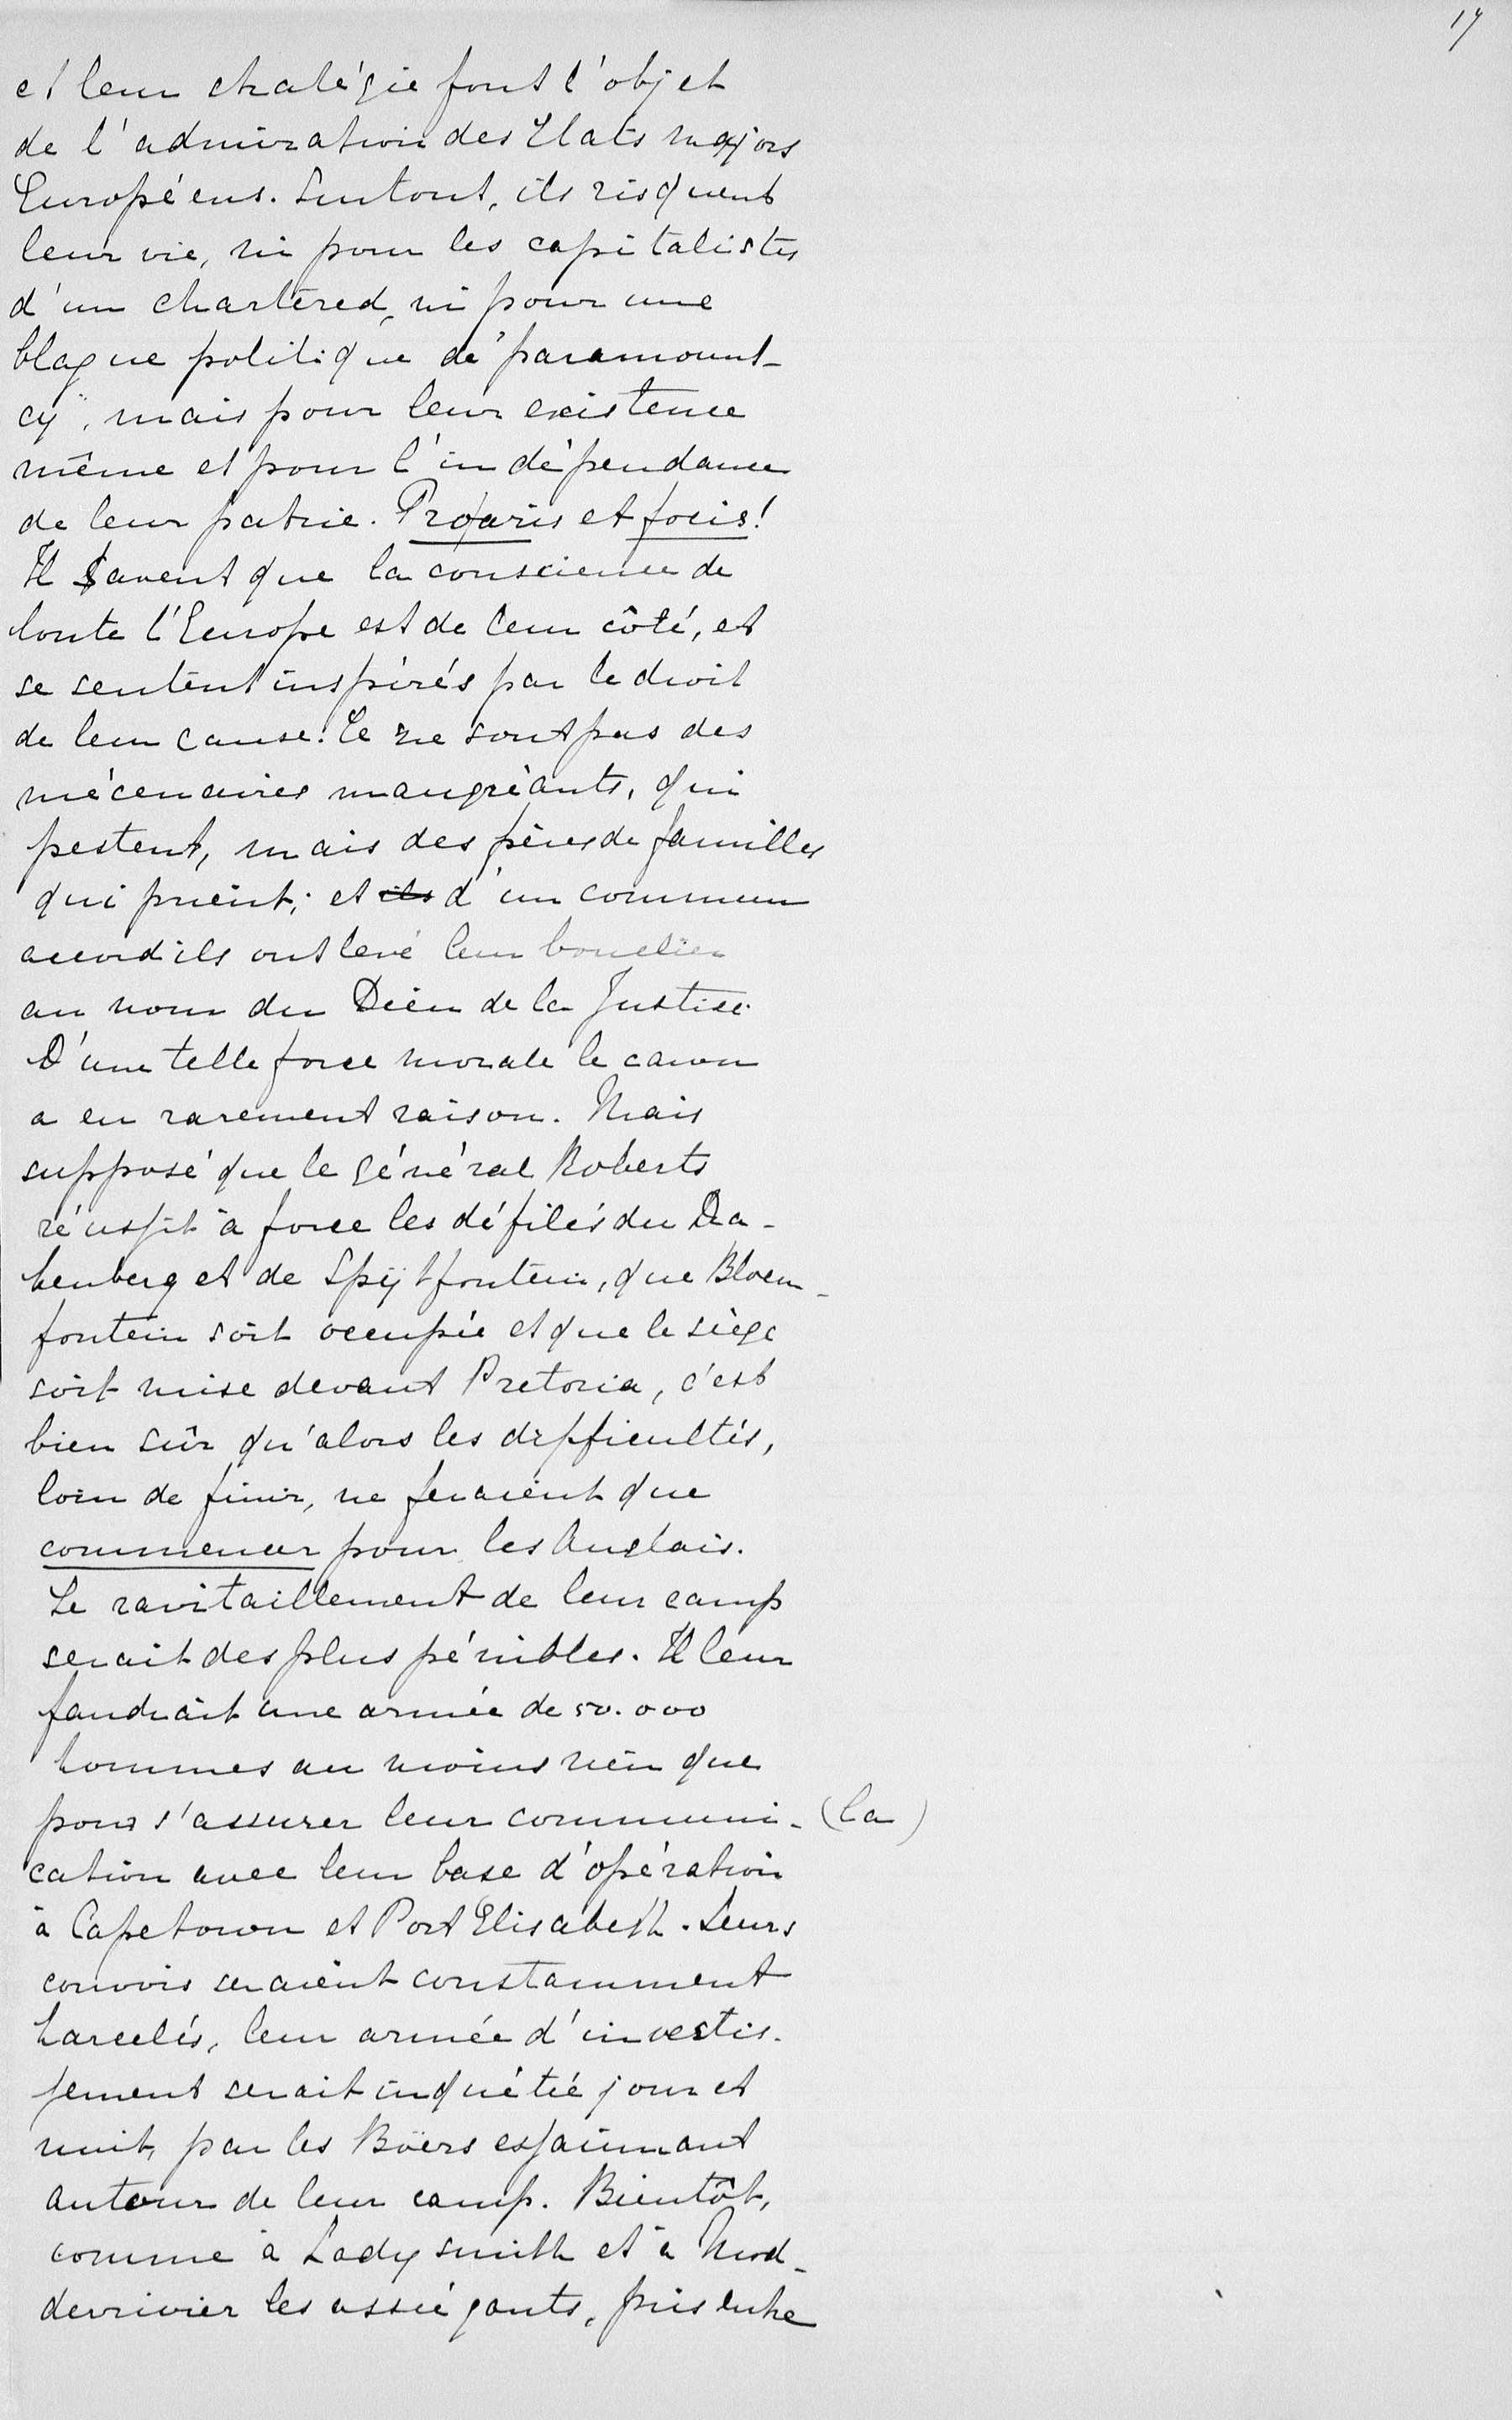 17
et leur stratégie font l'objet
de l'admiration des Etats majors
Européens. Surtout, ils risquent
leur vie, ni pour les capitalistes
d'un chartered, ni pour une
blague politique de "paramount-
cy", mais pour leur existence
même et pour l'indépendance
de leur patrie. Pro aris et focis!
Il savent que la conscience de
toute l'Europe est de leur côté, et
se sentent inspirés par le droit
de leur cause. Ce ne sont pas des
mécenaires maugréants, qui
pestent, mais des pères de familles
qui prient; et ils d'un commun
accord ils ont levé leur bouclier
au nom du Dieu de la Justice.
D'une telle force morale le canon
a eu rarement raison. Mais
supposé que le général Roberts
réussit à force les défilés du Dra-
kenberg et de Spijtfontein, que Bloem-
fontein soit occupée et que le siège
soit mise devant Pretoria, c'est
bien sûr qu'alors les difficultés,
loin de finir, ne feraient que
commencer pour les Anglais.
Le ravitaillement de leur camp
serait des plus pénibles. Il leur
faudrait une armée de 50.000
hommes au moins rien que
pour s'assurer leur communi- (la)
cation avec leur base d'opération
à Capetown et Port Elisabeth. Leurs
convois seraient constamment
harcelés, leur armée d'investis-
sement serait inquiétée jour et
nuit, par les Boërs essaimant
autour de leur camp. Bientôt,
comme à Ladysmith et à Mod-
derrivier les assiégants, pris entre